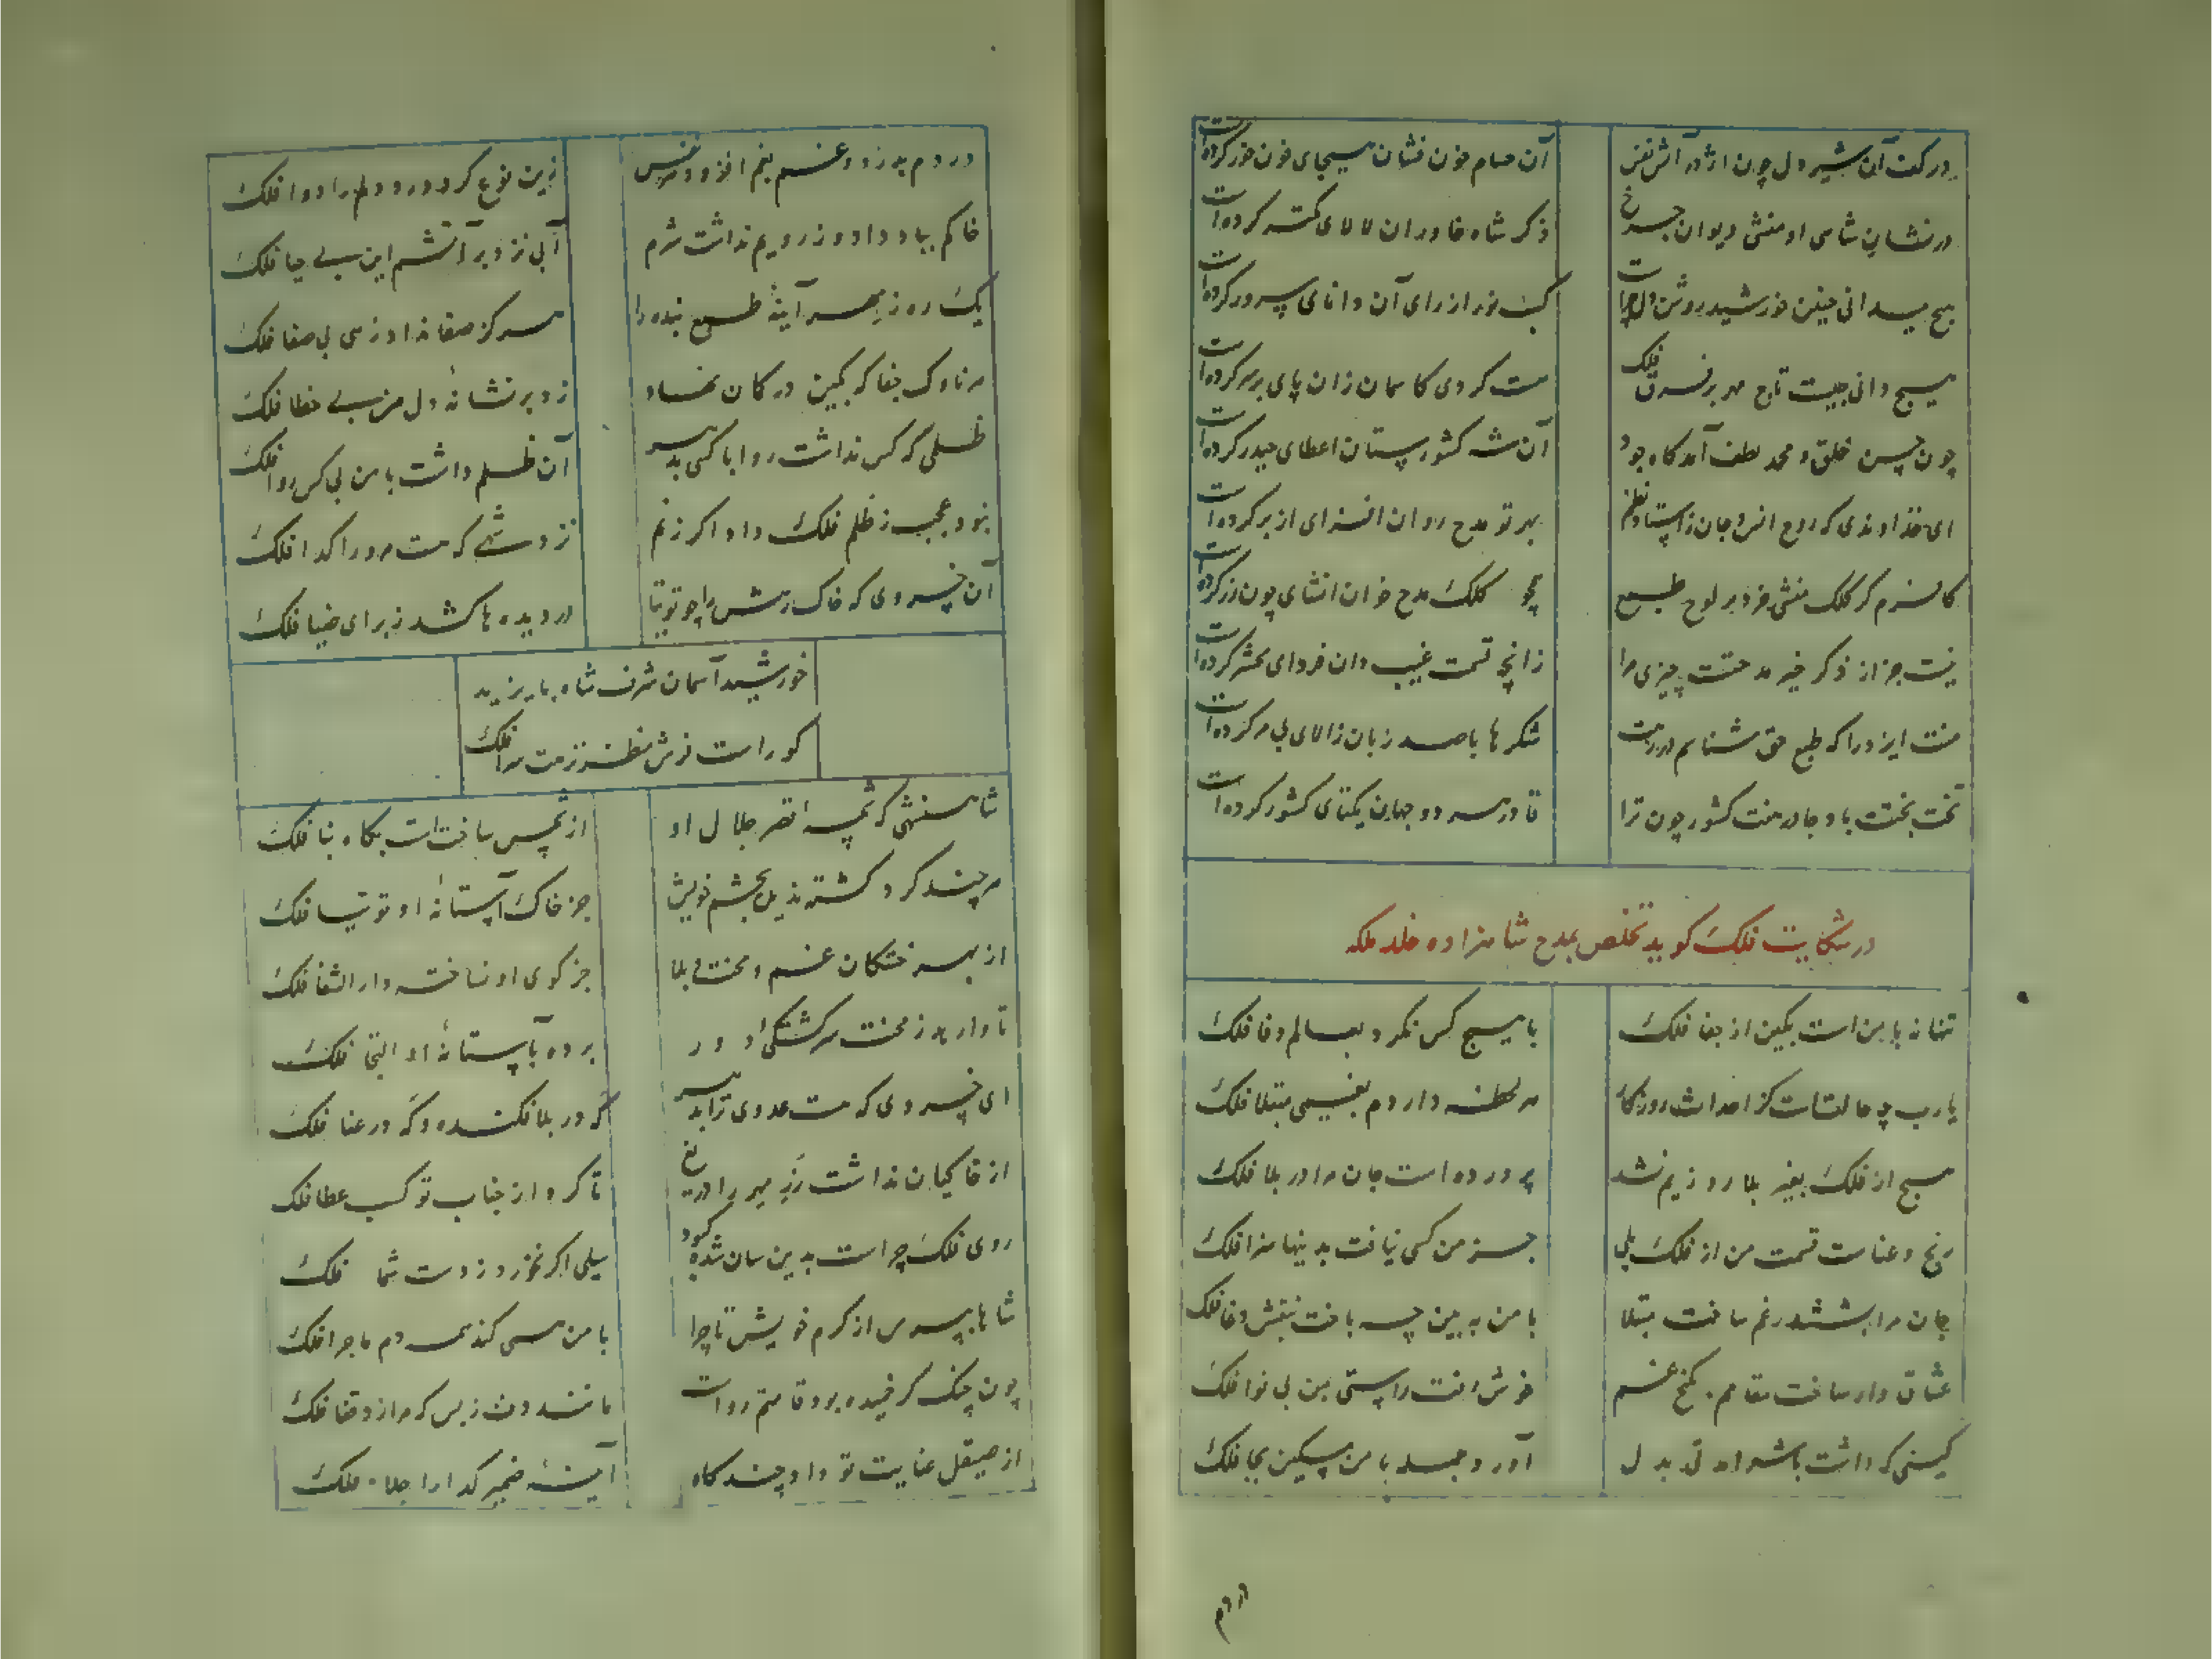 در کف آن شیر دل چون اژدر آتش نفس
آن حسام خون فشان مسیحای خون خور کرده است
در نشان شاهی او منشی دیوان چرخ
ذکر شاه خاوران لالای کمتر کرده است
هیچ میدانی چنین خورشید روشن دل چراست
کسب نور از رای آن دانای سرور کرده است
هیچ دانی چیست تاج مهر بر فرق فلک
مست کردی کاسمان زان پای بر سر کرده است
چون حسن خلق و محمد لطف آمد کاه جود
آن شه کشورستان اعطای حیدر کرده است
ای خداوندی که روح انس و جان زاستاد نطق
بهر تو مدح روان افزای از بر کرده است
کافرم گر کلک منشی خرد بر لوح طبع
همچو کلک مدح خوان انشای چون زر کرده است
نیست جز از ذکر خیر مدحتت چیزی مرا
زانچه قسمت غیب دان فردای محشر کرده است
منت ایزد را که طبع حق شناسم در برت
شکرها با صد زبان زالای بی مر کرده است
تخت بختت باد جا در هفت کشور چون ترا
قادر هر دو جهان یکتای کشور کرده است
در شکایت فلک کوید تخلص بمدح شاهزاده خلد ملکه
تنها نه با من است بکین از جفا فلک
با هیچ کس نکرد بعالم وفا فلک
یا رب چه حالتست کز احداث روزکار
هر لحظه داردم بغمی مبتلا فلک
هیچ از فلک بغیر بلا روزیم نشد
پرورده است جان مرا در بلا فلک
رنج و عناست قسمت من از فلک بلی
جز من کسی نیافت بدینها سزا فلک
جان مرا بششدر غم ساخت مبتلا
با من ببین چه باخت بنقش دغا فلک
عشاق وار ساخت مقامم بکنج غم
خوش راستی بمن بی نوا فلک
کینی که داشت با شه او تد بدل
آورد جمله با من مسکین بجا فلک
دردم بدرد و غم بغم افزود هر نفس
زین نوع کرد درد دلم را دوا فلک
خاکم بباد داد و ز رویم نداشت شرم
آبی نزد بر آتشم این بی حیا فلک
یک ره ز مهر آینهٔ طبع بنده را
هرکز صفا نداد زهی بی صفا فلک
هر ناوک جفا که بکین در کمان نهاد
زد بر نشانهٔ دل من بی خطا فلک
ظلمی که کس نداشت روا با کسی بدهر
آن ظلم داشت با من بی کس روا فلک
نبود عجب ز ظلم فلک داد اکر زنم
نزد شهی که هست مر او را کدا فلک
آن خسروی که خاک رهش را چو توتیا
در دیده ها کشد ز برای ضیا فلک
خورشید آسمان شرف شاه بایزید
کوراست فرش منظر نزهت سرا فلک
شاهنشهی که شمسهٔ قصر جلال او
از شمس ساخت است بکاه بنا فلک
هر چند کرد کشت ندیدی بچشم خویش
جز خاک آستانهٔ او توتیا فلک
از بهر خستکان غم و محنت و بلا
جز کوی او نساخته دار الشفا فلک
تا واردهد ز محنت سرکشتکی او را
برده بآستانهٔ او التجا فلک
ای خسروی که هست عدوی ترا بدهر
که در بلا فکنده و که در عنا فلک
از خاکیان نداشت زر مهر را دریغ
تا کرد از جناب تو کسب عطا فلک
روی فلک چراست بدین سان شده کبود
سیلی اکر نخورد ز دست شما فلک
شاها بپرس از کرم خویش تا چرا
با من همی کند همه دم ماجرا فلک
چون چنک کر خمیده بود قامتم رواست
مانند دف ز بس که مرا زد قفا فلک
از صیقل عنایت تو داد چند کاه
آیینهٔ ضمیر کدا را جلا فلک